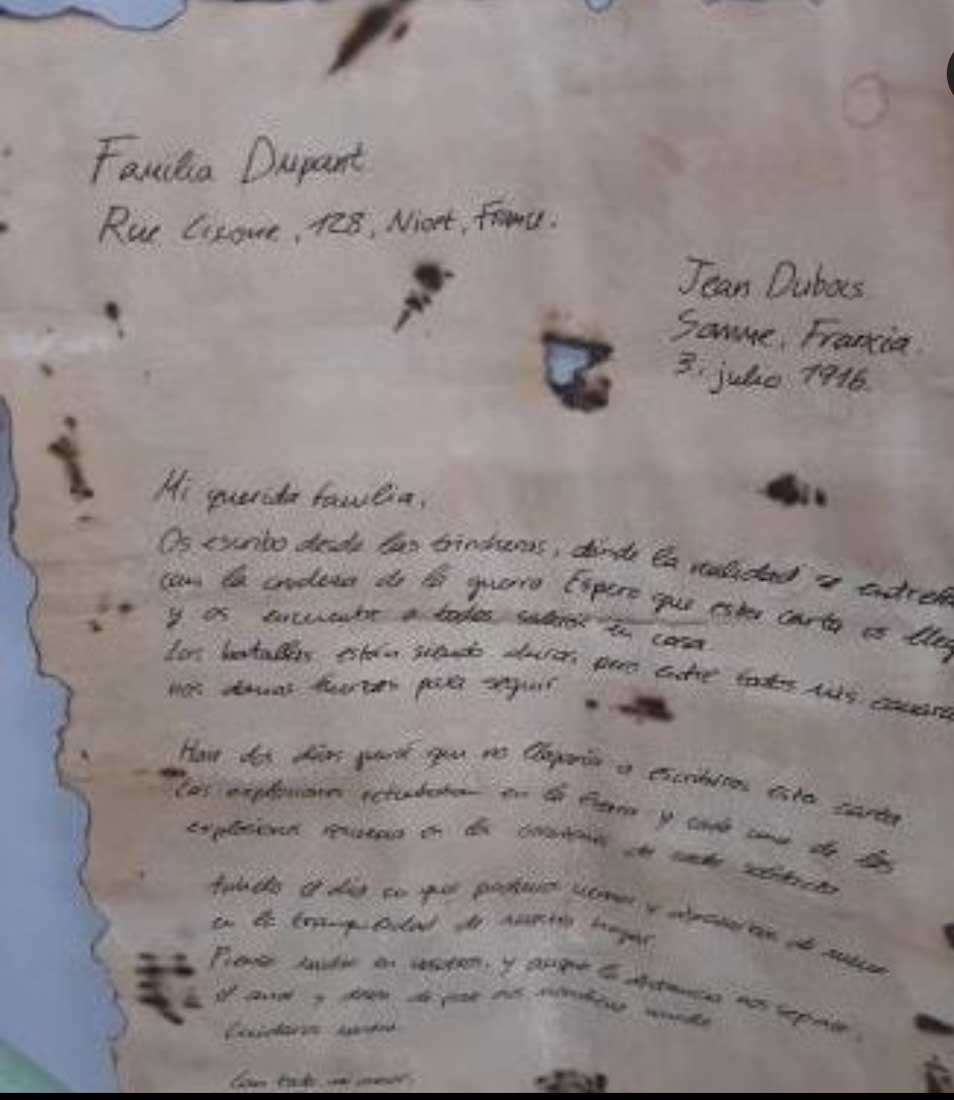 Familia Dupant
Rue Cisone, 128, Niort, France.
Jean Dubois
Somme, Francia.
3, julio 1916.
Mi querida familia,
Os escribo desde las trincheras, donde la realidad se
con la crudeza de la guerra Espero que esta carta os
y os encuentre a todos salvos en casa
Las batallas están siendo duras, pero entre todos mis
nos damos fuerzas para seguir
Hace dos días pensé que no llegaría a escribiros esta carta
Las explosiones retumbaban en la tierra y cada una de las
explosiones en de cada soldado
el día en que podamos vernos y de nuevo
en la tranquilidad de nuestro hogar
Pienso mucho en vosotros, y aunque la distancia nos separe,
el amor y de paz nos
Cuidaros mucho
Con todo mi amor,